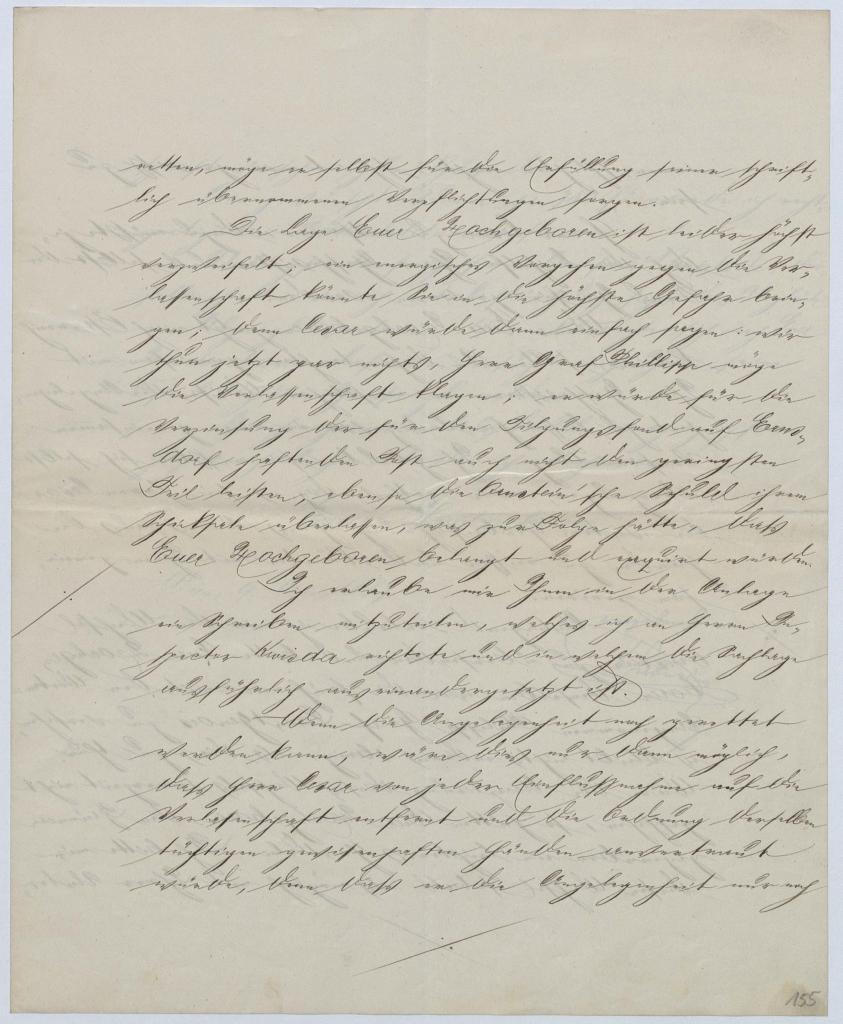 retten, möge er selbst für die Erfüllung seiner schrift-
lich übernommenen Verpflichtungen sorgen.
Die Lage Euer Hochgeboren ist leider höchst
verzweifelt; ein energisches Vorgehen gegen die Ver-
lassenschaft, könnte Sie in die höchste Gefahr brin-
gen; denn Cesar würde dann einfach sagen: wir
thun jetzt gar nichts, Herr Graf Phillipp möge
die Verlassenschaft klagen; er würde für die
Verzinsung der für den Tilgungsfond auf Erns-
dorf haftenden Post auch nicht den geringsten
Teil leisten, ebenso die Ornstein'sche Schuld ihrem
Schicksale überlassen, was zur Folge hätte, dass
Euer Hochgeboren belangt und exequirt würden.
Ich erlaube mir Ihnen in der Anlage
ein Schreiben mitzuteilen, welches ich an Herrn In-
spector Kwizda richtete und in welchem die Sachlage
ausführlich auseinandergesetzt ist.
Wenn die Angelegenheit noch gerettet
werden kann, wäre dies nur dann möglich,
dass Herr Cesar von jeder Einflussnahme auf die
Verlassenschaft entfernt und die Ordnung derselben
tüchtigen gewissenhaften Händen anvertraut
würde, denn dass er die Angelegenheit nur noch
155